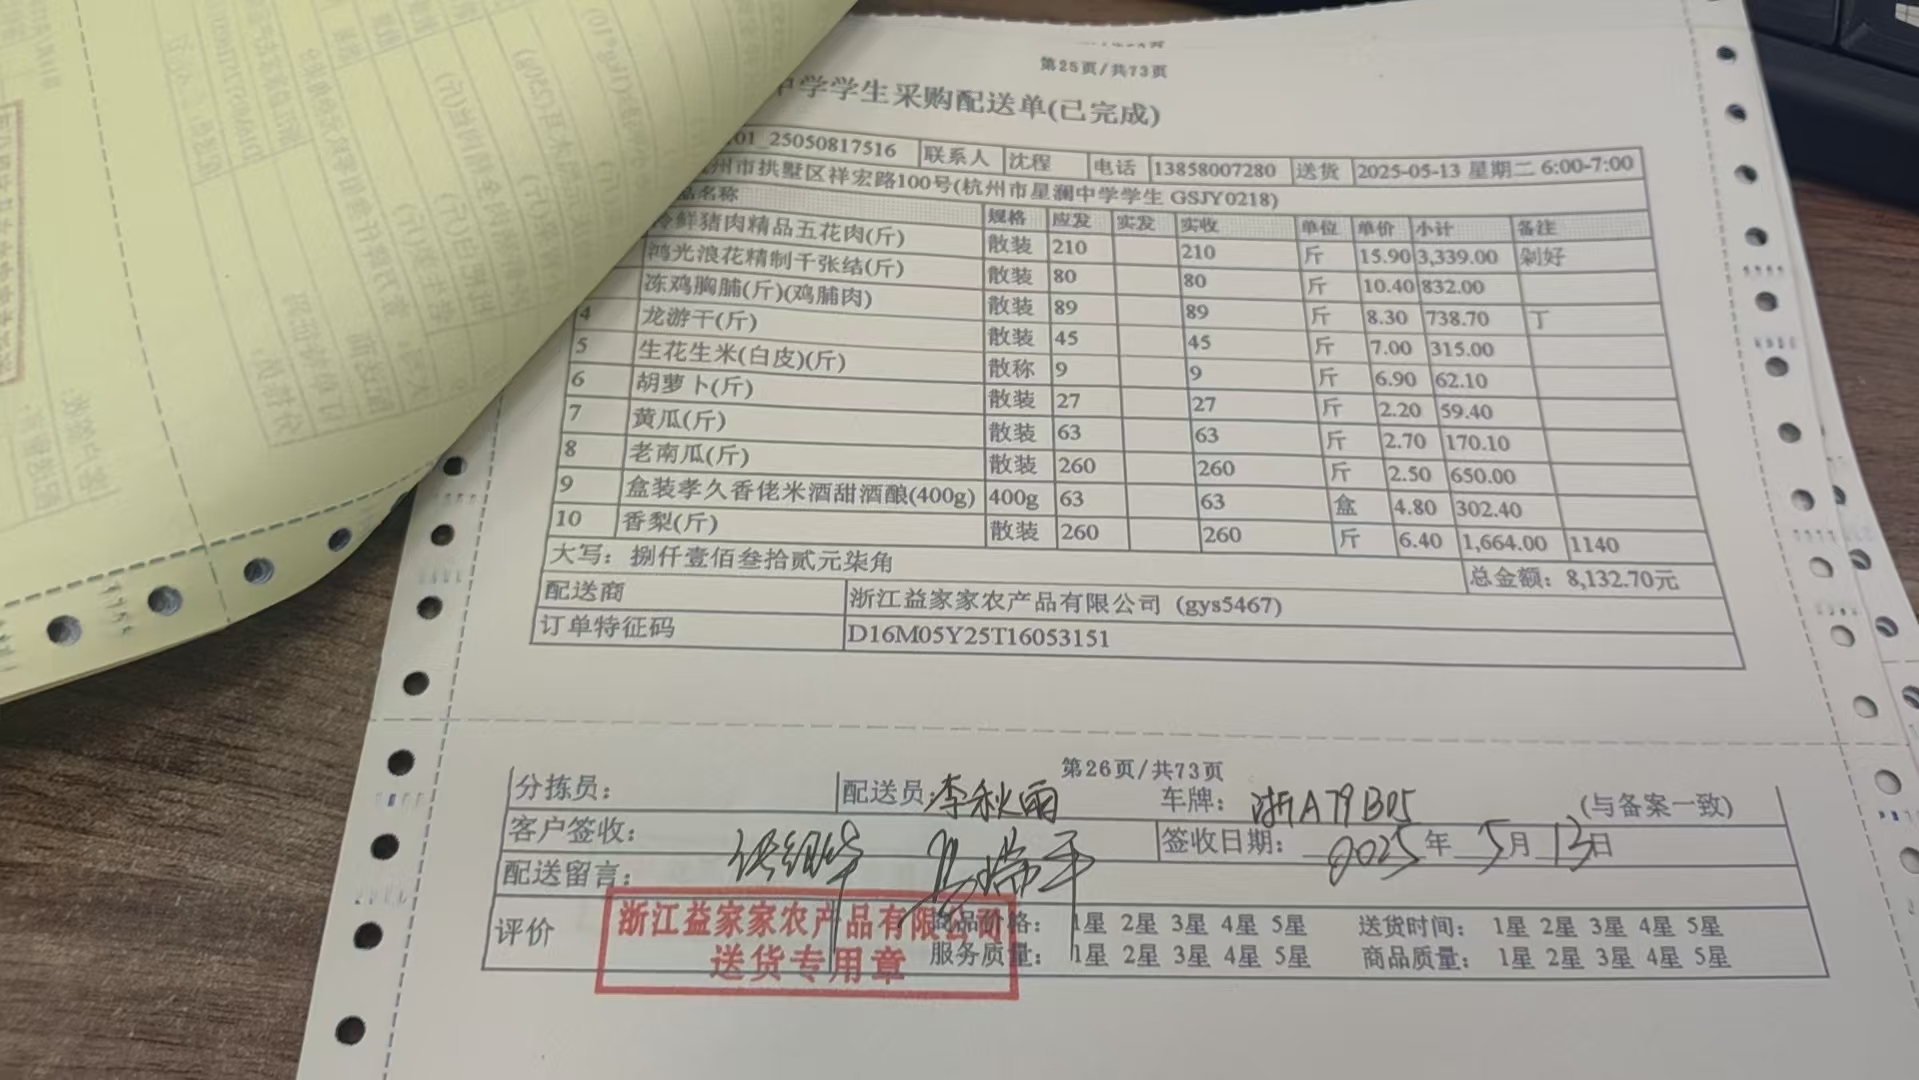 第25页/共73页
中学学生采购配送单(已完成)
01_25050817516 联系人 沈程 电话 13858007280 送货 2025-05-13 星期二 6:00-7:00
州市拱墅区祥宏路100号(杭州市星澜中学学生 GSJY0218)
品名称 规格 应发 实发 实收 单位 单价 小计 备注
冷鲜猪肉精品五花肉(斤) 散装 210 210 斤 15.90 3,339.00 剁好
鸿光浪花精制千张结(斤) 散装 80 80 斤 10.40 832.00
冻鸡胸脯(斤)(鸡脯肉) 散装 89 89 斤 8.30 738.70 丁
4 龙游干(斤) 散装 45 45 斤 7.00 315.00
5 生花生米(白皮)(斤) 散称 9 9 斤 6.90 62.10
6 胡萝卜(斤) 散装 27 27 斤 2.20 59.40
7 黄瓜(斤) 散装 63 63 斤 2.70 170.10
8 老南瓜(斤) 散装 260 260 斤 2.50 650.00
9 盒装孝久香佬米酒甜酒酿(400g) 400g 63 63 盒 4.80 302.40
10 香梨(斤) 散装 260 260 斤 6.40 1,664.00 1140
大写：捌仟壹佰叁拾贰元柒角 总金额：8,132.70元
配送商 浙江益家家农产品有限公司 (gys5467)
订单特征码 D16M05Y25T16053151
第26页/共73页
分拣员： 配送员：李秋雨 车牌：浙A79B05 (与备案一致)
客户签收： 签收日期：2025年5月13日
配送留言：
评价 商品价格： 1星 2星 3星 4星 5星 送货时间： 1星 2星 3星 4星 5星
服务质量： 1星 2星 3星 4星 5星 商品质量： 1星 2星 3星 4星 5星
浙江益家家农产品有限公司
送货专用章